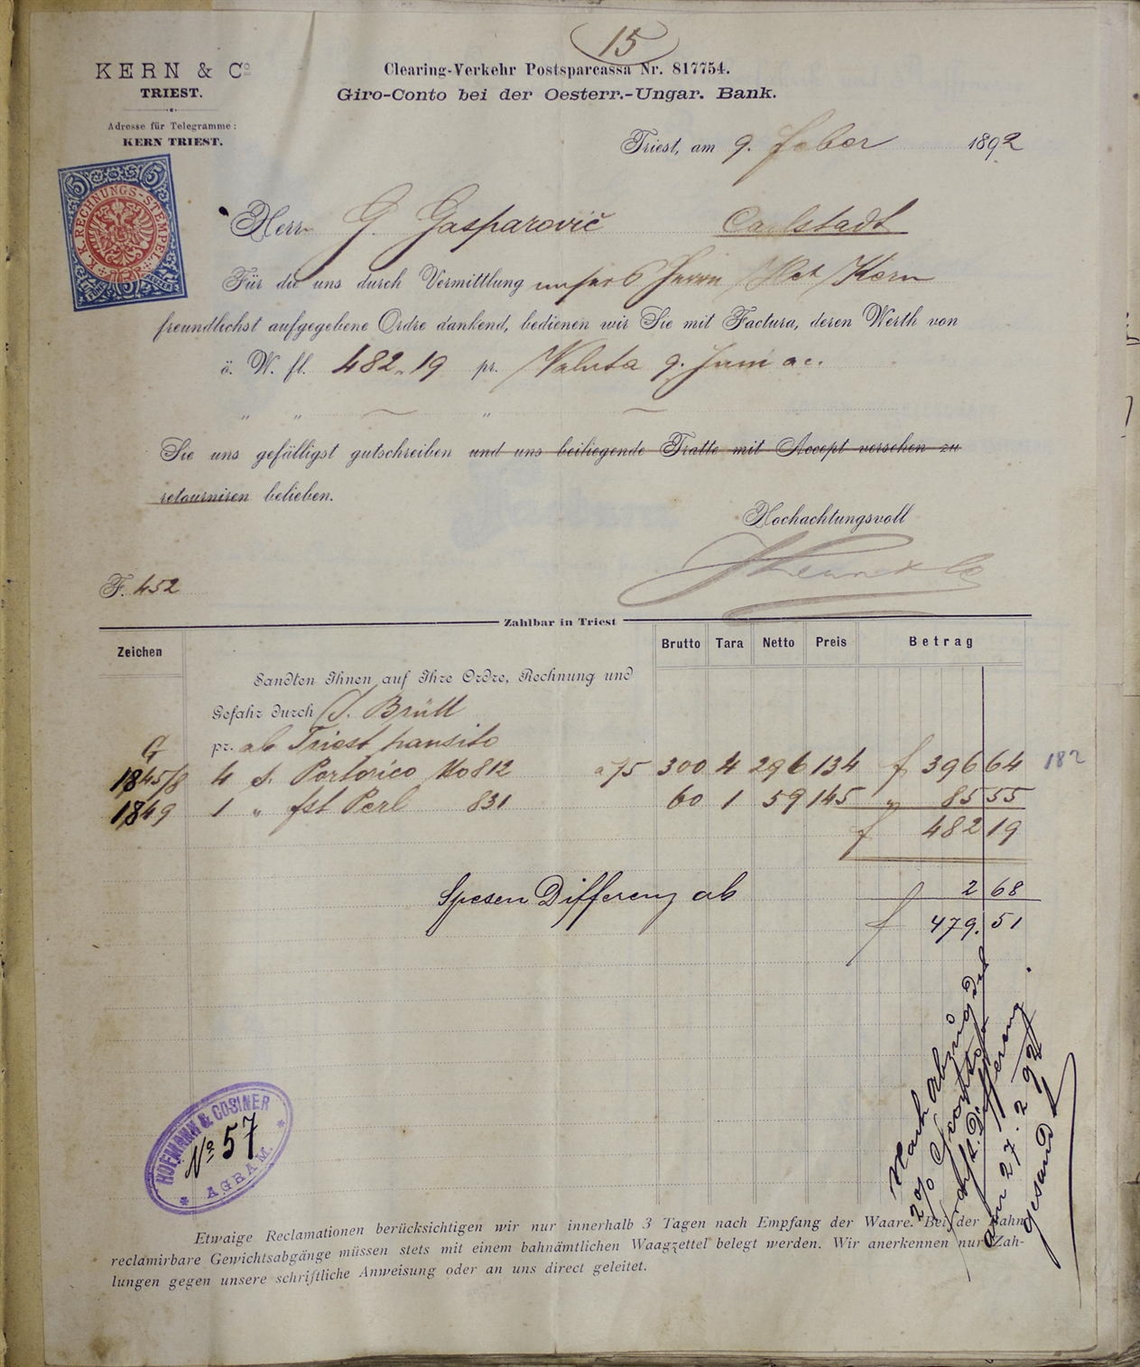 15
KERN & Cº
TRIEST.
Adresse für Telegramme:
KERN TRIEST.
Clearing-Verkehr Postsparcassa Nr. 817754.
Giro-Conto bei der Oesterr.-Ungar. Bank.
Triest, am 9. Feber 1892
5 5
K.K. RECHNUNGS-STEMPEL
Herrn G. Gasparovič Carlstadt
Für die uns durch Vermittlung unsers Herrn Kern
freundlichst aufgegebene Ordre dankend, bedienen wir Sie mit Factura, deren Werth von
ö. W. fl. 482.19 pr. Valuta 9. Juni a.c.
Sie uns gefälligst gutschreiben und uns beiliegende Tratte mit Accept versehen zu
retourniren belieben.
Hochachtungsvoll
F. 452
Zahlbar in Triest
Zeichen Brutto Tara Netto Preis Betrag
Sandten Ihnen auf Ihre Ordre, Rechnung und
Gefahr durch J. Brüll
G pr. ab Triest transito
1845/8 4 S. Portorico No 812 a 75 300 4 296 134 f 396 64 182
1849 1 " fst Perl 831 60 1 59 145 " 85 55
f 482 19
Spesen Differenz ab f 2 68
f 479. 51
Nach Abzug des
2% Sconto
Differenz
am 27. 2 92
gesandt
HOFMANN & COSINER
Nº 57
* AGRAM. *
Etwaige Reclamationen berücksichtigen wir nur innerhalb 3 Tagen nach Empfang der Waare. Bei der Bahn
reclamirbare Gewichtsabgänge müssen stets mit einem bahnämtlichen Waagzettel belegt werden. Wir anerkennen nur Zah-
lungen gegen unsere schriftliche Anweisung oder an uns direct geleitet.